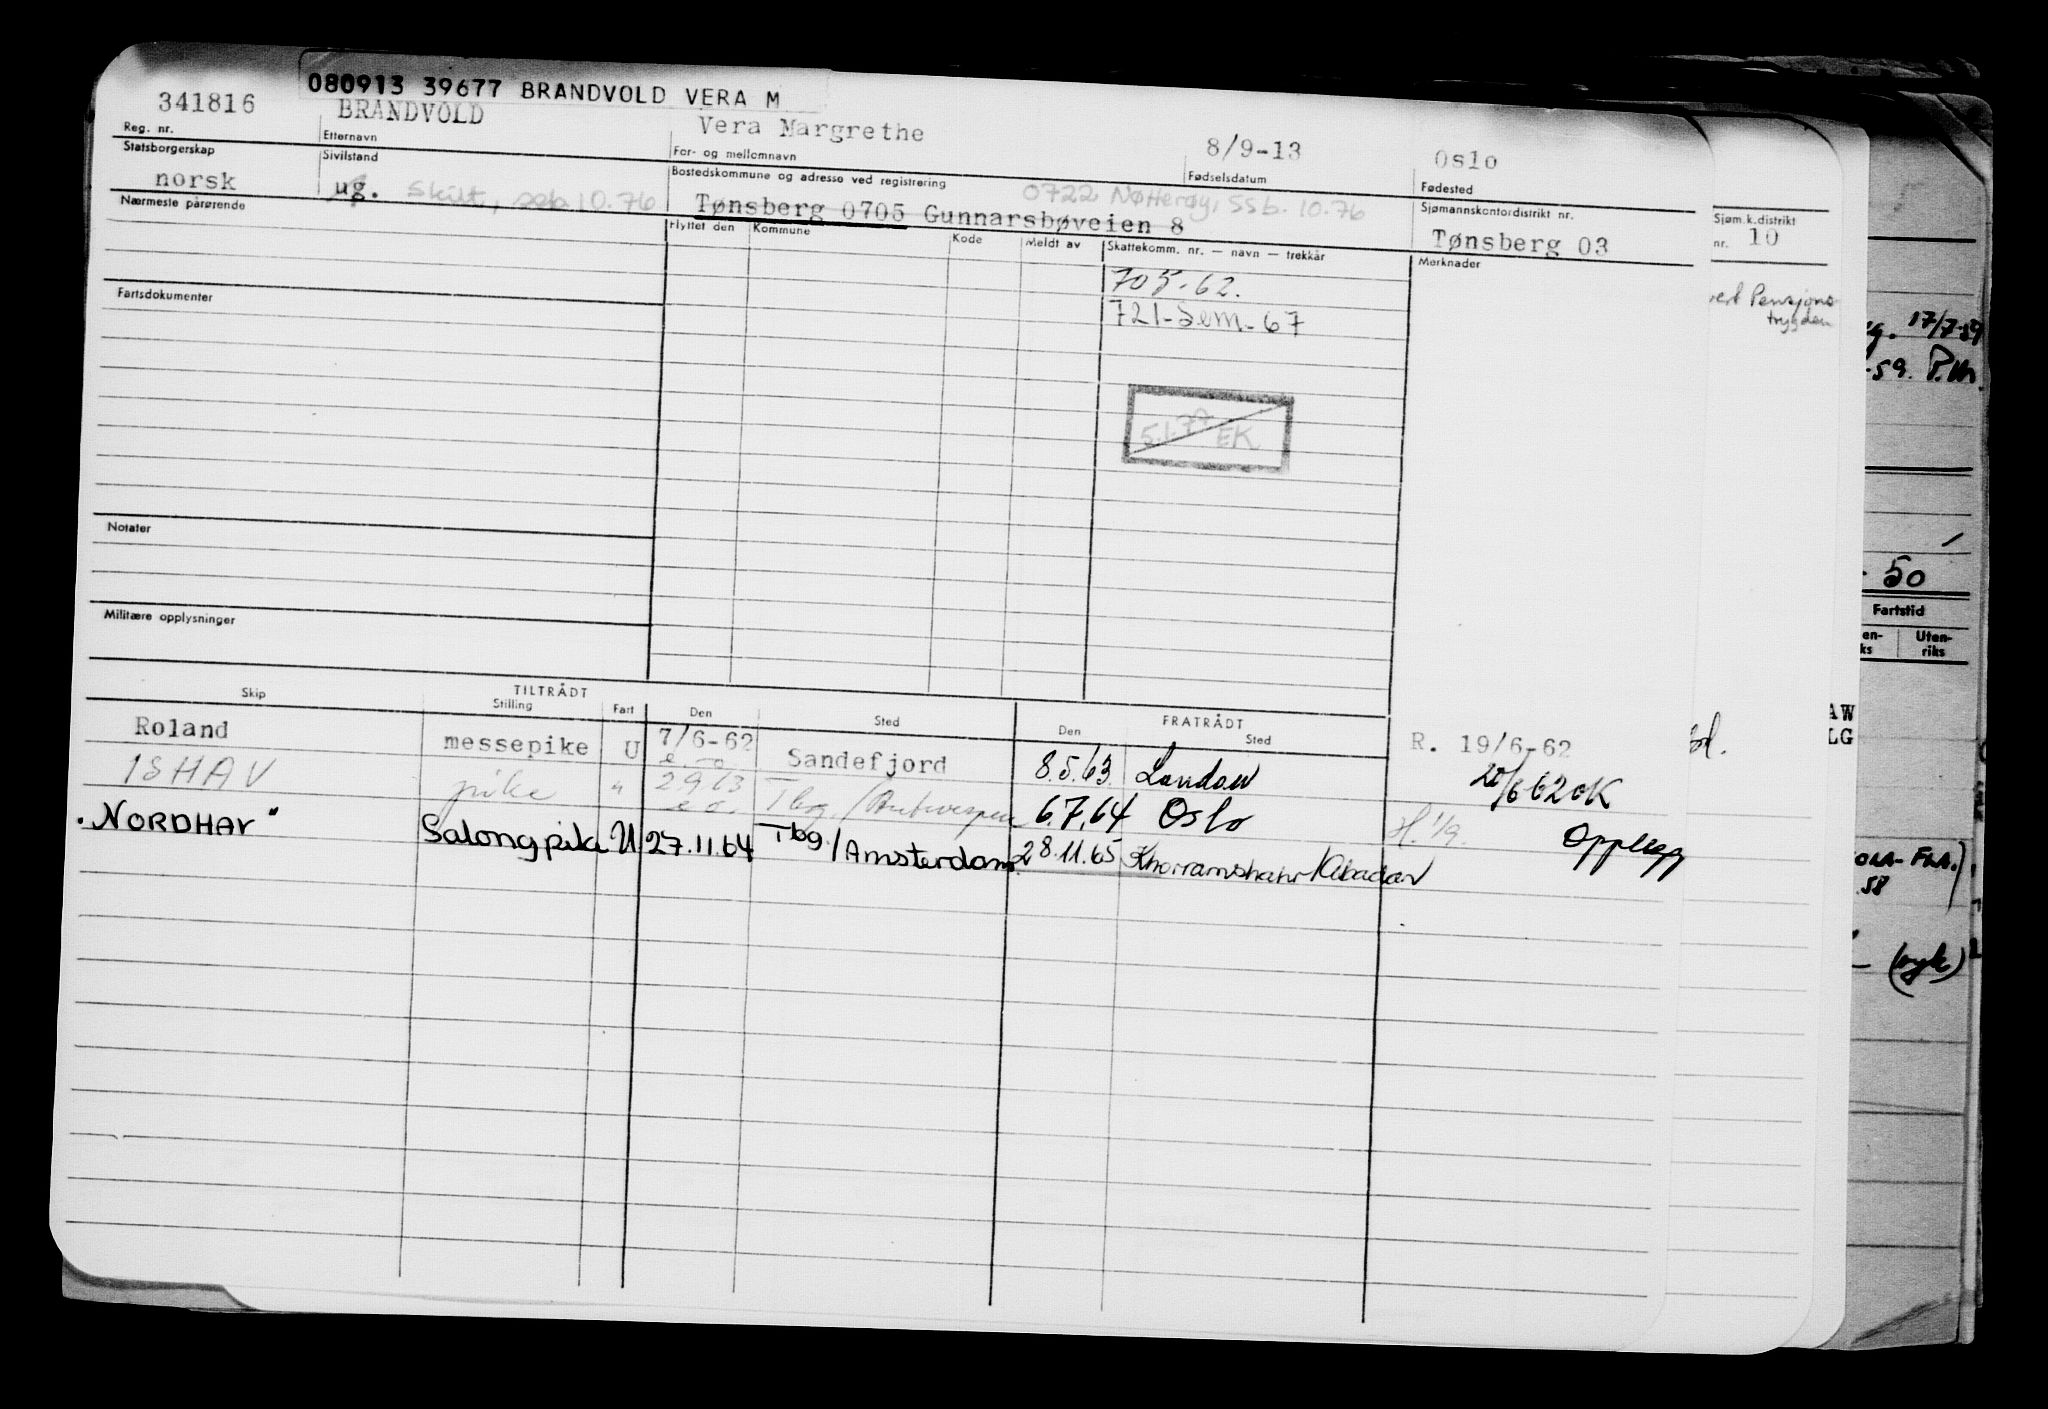 080913 39677 BRANDVOLD VERA M
341816 BRANDVOLD Vera Margrethe 8/9-13 Oslo
Reg. nr. Etternavn For- og mellomnavn Fødselsdatum Fødested
Statsborgerskap Sivilstand Bostedskommune og adresse ved registrering Sjømannskontordistrikt nr.
norsk ug. Skilt, seb 10.76 Tønsberg 0705 Gunnarsbøveien 8 0722 Nøtterøy, SSb. 10.76 Tønsberg 03
Sjøm.k.distrikt
nr. 10
Nærmeste pårørende Flyttet den Kommune Kode Meldt av Skattekomm. nr. — navn — trekkår Merknader
705-62.
721-Sem-67
Fartsdokumenter
Pensjons
trygden
17/7-59
-59. P.M.
5.1.77 EK
Notater
- 50
Militære opplysninger
Fartstid
en-
ks
Uten-
riks
TILTRÅDT FRATRÅDT
Skip Stilling Fart Den Sted Den Sted
Roland messepike U 7/6-62 Sandefjord 8.5.63 London R. 19/6-62
e.o.
20/6 62 OK
ISHAV pike " 2.9.63 Tbg./Antwerpen 6.7.64 Oslo H. 1/9.
e.o.
Opplegg
"NORDHAV" Salongpike U 27.11.64 Tbg./Amsterdam. 28.11.65 Khorramshahr/Abadan
AW
LG
FRA.)
58